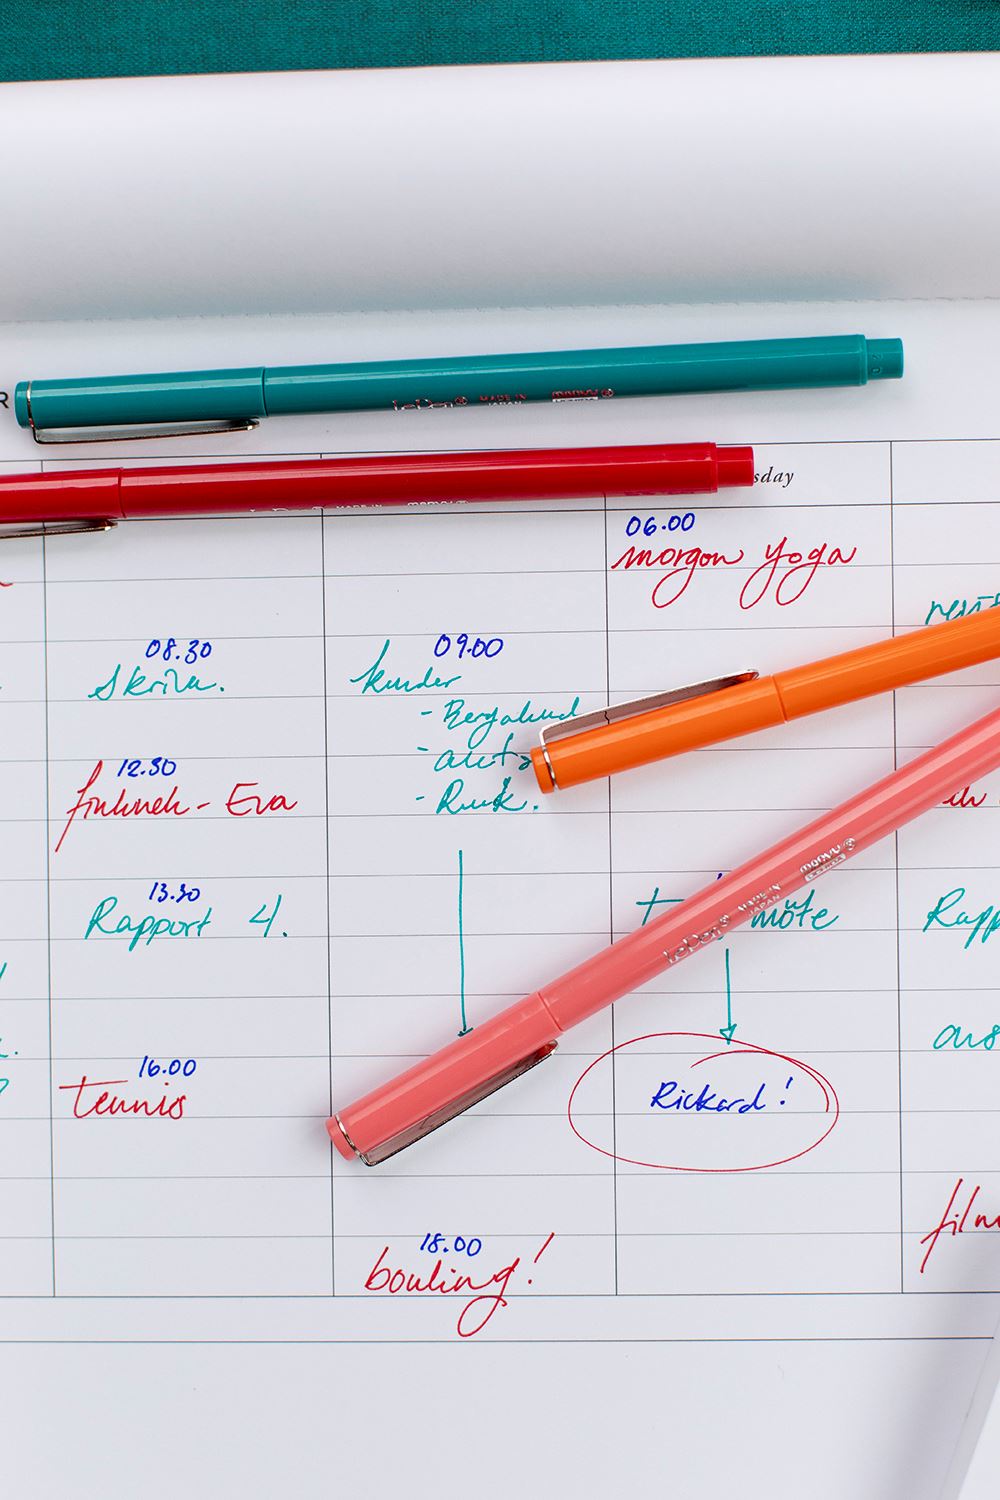 R
LePen MADE IN JAPAN marvy UCHIDA
MADE IN marvy
sday
06.00
morgon yoga
08.30
Skriva.
12.30
- Eva
13.30
Rapport 4.
16.00
tennis
09.00
kunder
- Berglund
18.00
bouling!
LePen MADE IN JAPAN marvy UCHIDA
möte
Rickard!
Rapp
film